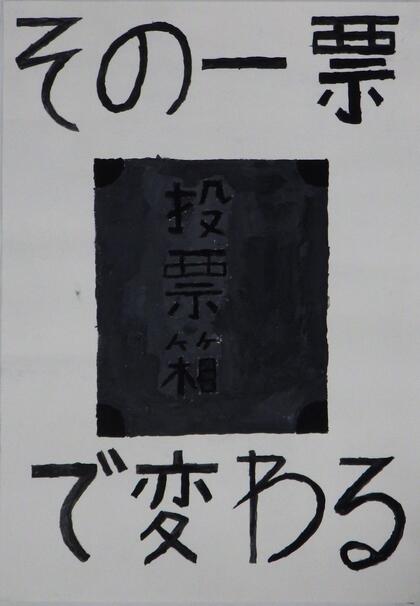 その一票
投票箱
で変わる